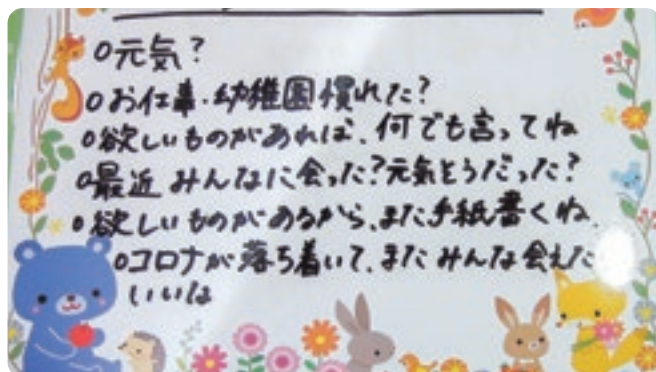 o元気?
oお仕事・幼稚園慣れた?
o欲しいものがあれば、何でも言ってね
o最近 みんなに会った?元気そうだった?
o欲しいものがあるから、また手紙書くね、
oコロナが落ち着いて、また みんな会えた
いいね